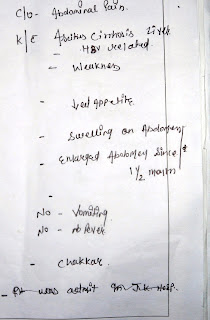 C/o - Abdominal Pain.
K/E Ascites Cirrhosis Liver
- HBV related.
- Weakness
- Less Appetite
- Swelling on Abdomen
- Enlarged Abdomen Since
1 1/2 month
-
No - Vomiting
No - fever
- Chakkar
- was admit Hosp.